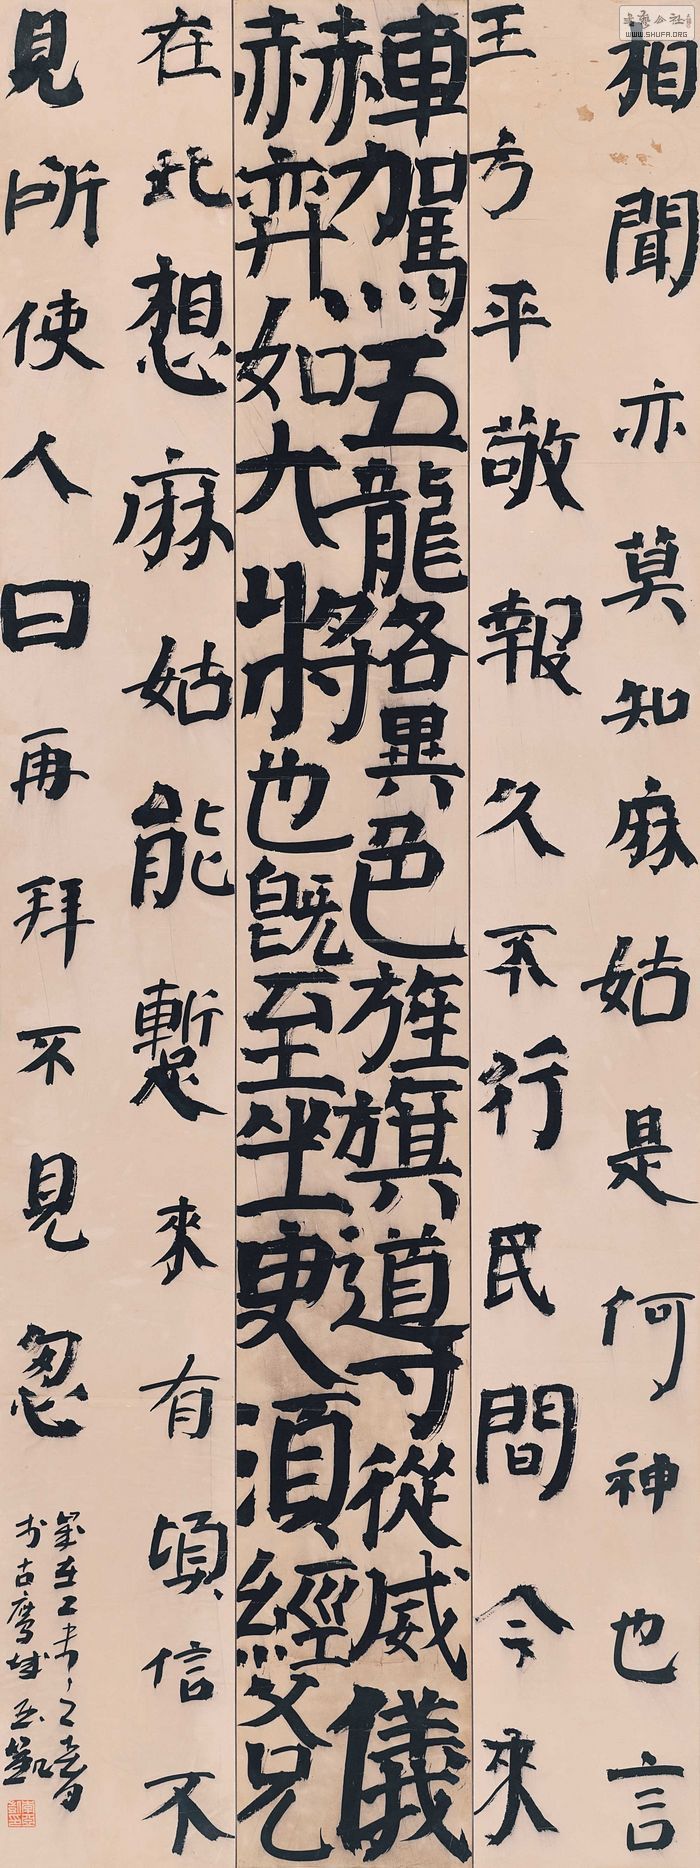 相聞亦莫知麻姑是何神也言
王方平敬報久不行民間今來
車駕五龍各異色旌旗導從威儀
赫弈如大將也既至坐更須經父兄
在此想麻姑能暫來有頃信不
見所使人曰再拜不見忽
歲在乙未之春
於古鷹城
书艺公社
WWW.SHUFA.ORG